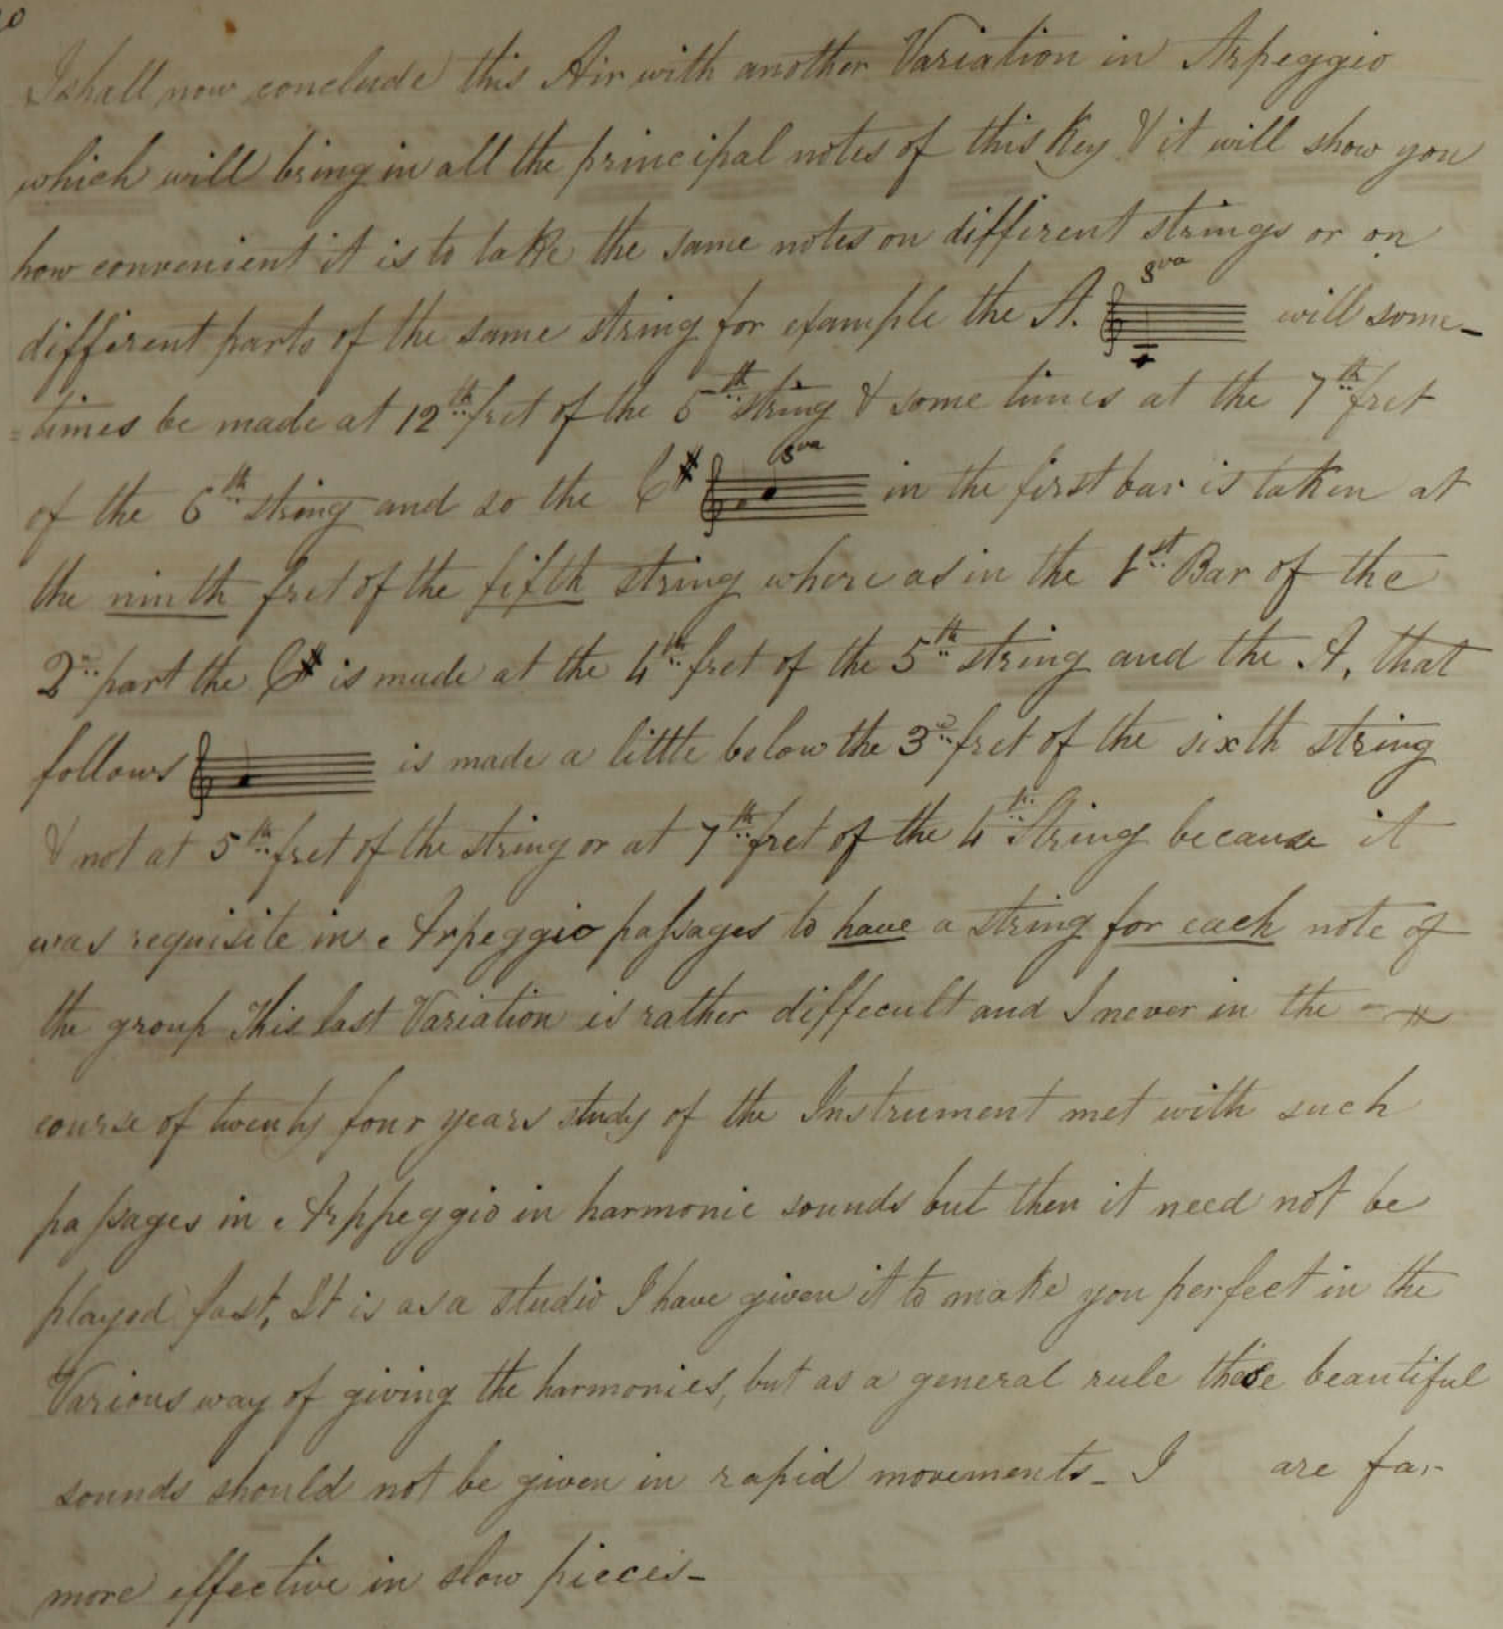 I shall now conclude this Air with another Variation in Arpeggio
which will bring in all the principal notes of this Key & it will show you
how convenient it is to take the same notes on different strings or on
different parts of the same string for example the A. 8va will some-
=times be made at 12th fret of the 5th string & some times at the 7th fret
of the 6th string and so the C# 8va in the first bar is taken at
the ninth fret of the fifth string where as in the 1st Bar of the
2nd part the C# is made at the 4th fret of the 5th string and the A, that
follows is made a little below the 3rd fret of the sixth string
& not at 5th fret of the string or at 7th fret of the 4th String because it
was requisite in Arpeggio paſsages to have a string for each note of
the group This last Variation is rather diffecult and I never in the
course of twenty four years study of the Instrument met with such
paſsages in Arppeggio in harmonic sounds but then it need not be
played fast, It is as a studio I have given it to make you perfect in the
Various way of giving the harmonies, but as a general rule these beautiful
sounds should not be given in rapid movements - I are far
more effective in slow pieces -